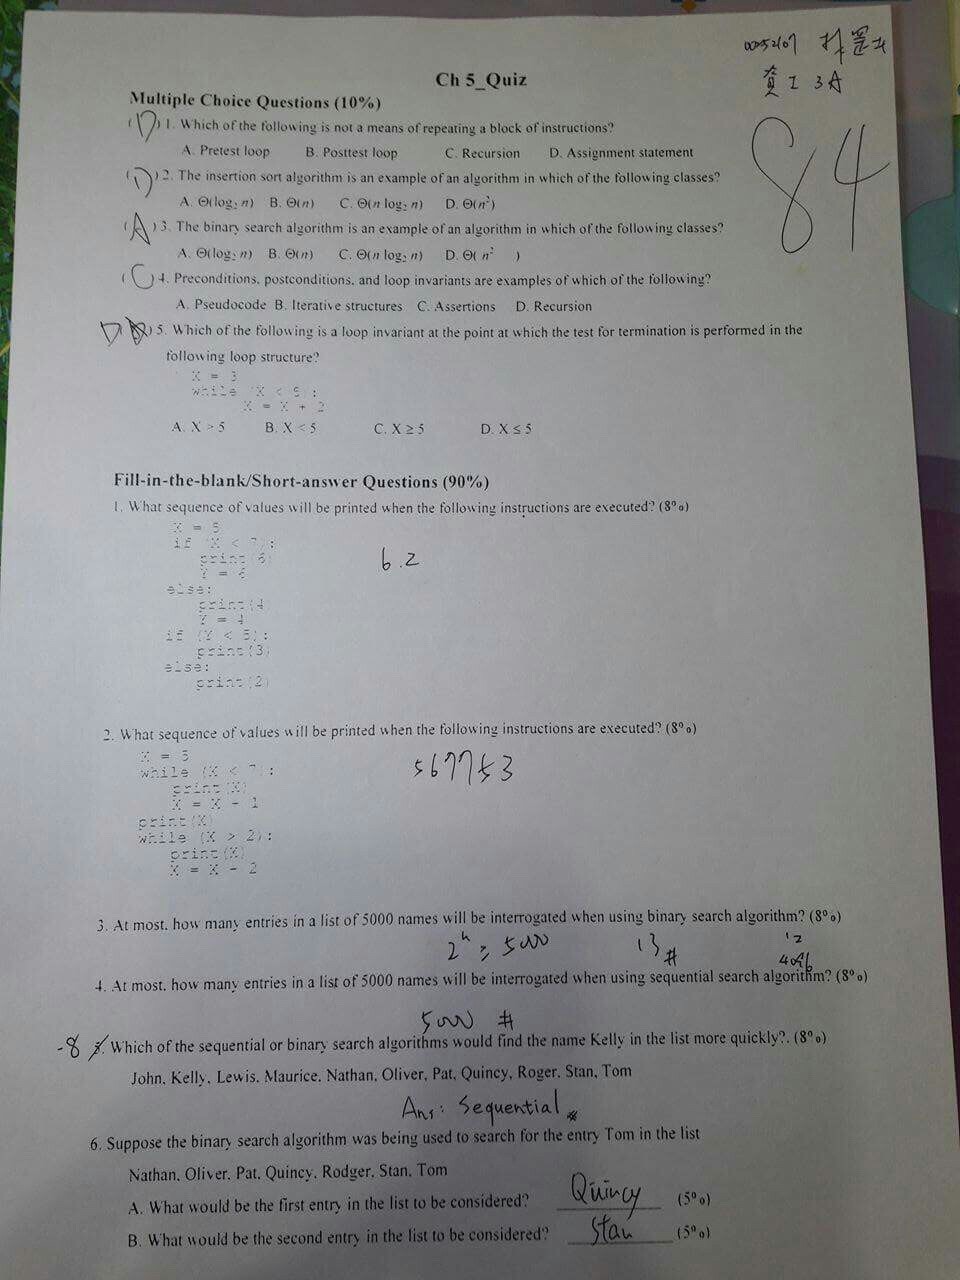 00052107 林
資工 3A
84
Ch 5_Quiz
Multiple Choice Questions (10%)
(D) 1. Which of the following is not a means of repeating a block of instructions?
A. Pretest loop B. Posttest loop C. Recursion D. Assignment statement
(D) 2. The insertion sort algorithm is an example of an algorithm in which of the following classes?
A. Θ(log₂ n) B. Θ(n) C. Θ(n log₂ n) D. Θ(n²)
(A) 3. The binary search algorithm is an example of an algorithm in which of the following classes?
A. Θ(log₂ n) B. Θ(n) C. Θ(n log₂ n) D. Θ( n² )
(C) 4. Preconditions, postconditions, and loop invariants are examples of which of the following?
A. Pseudocode B. Iterative structures C. Assertions D. Recursion
D ( ) 5. Which of the following is a loop invariant at the point at which the test for termination is performed in the
following loop structure?
X = 3
while (X < 5):
X = X + 2
A. X > 5 B. X < 5 C. X ≥ 5 D. X ≤ 5
Fill-in-the-blank/Short-answer Questions (90%)
1. What sequence of values will be printed when the following instructions are executed? (8%)
X = 5
if (X < 7):
print(6)
Y = 6
else:
print(4
Y = 4
if (Y < 5):
print(3)
else:
print(2)
6.2
2. What sequence of values will be printed when the following instructions are executed? (8%)
X = 5
while (X < 7):
print(X)
X = X - 1
print(X)
while (X > 2):
print(X)
X = X - 2
567753
3. At most, how many entries in a list of 5000 names will be interrogated when using binary search algorithm? (8%)
2ⁿ ≥ 5000 13 # 12
4096
4. At most, how many entries in a list of 5000 names will be interrogated when using sequential search algorithm? (8%)
5000 #
-8 5. Which of the sequential or binary search algorithms would find the name Kelly in the list more quickly?. (8%)
John, Kelly, Lewis, Maurice, Nathan, Oliver, Pat, Quincy, Roger, Stan, Tom
Ans: Sequential #
6. Suppose the binary search algorithm was being used to search for the entry Tom in the list
Nathan, Oliver, Pat, Quincy, Rodger, Stan, Tom
A. What would be the first entry in the list to be considered? Quincy (5%)
B. What would be the second entry in the list to be considered? Stan (5%)